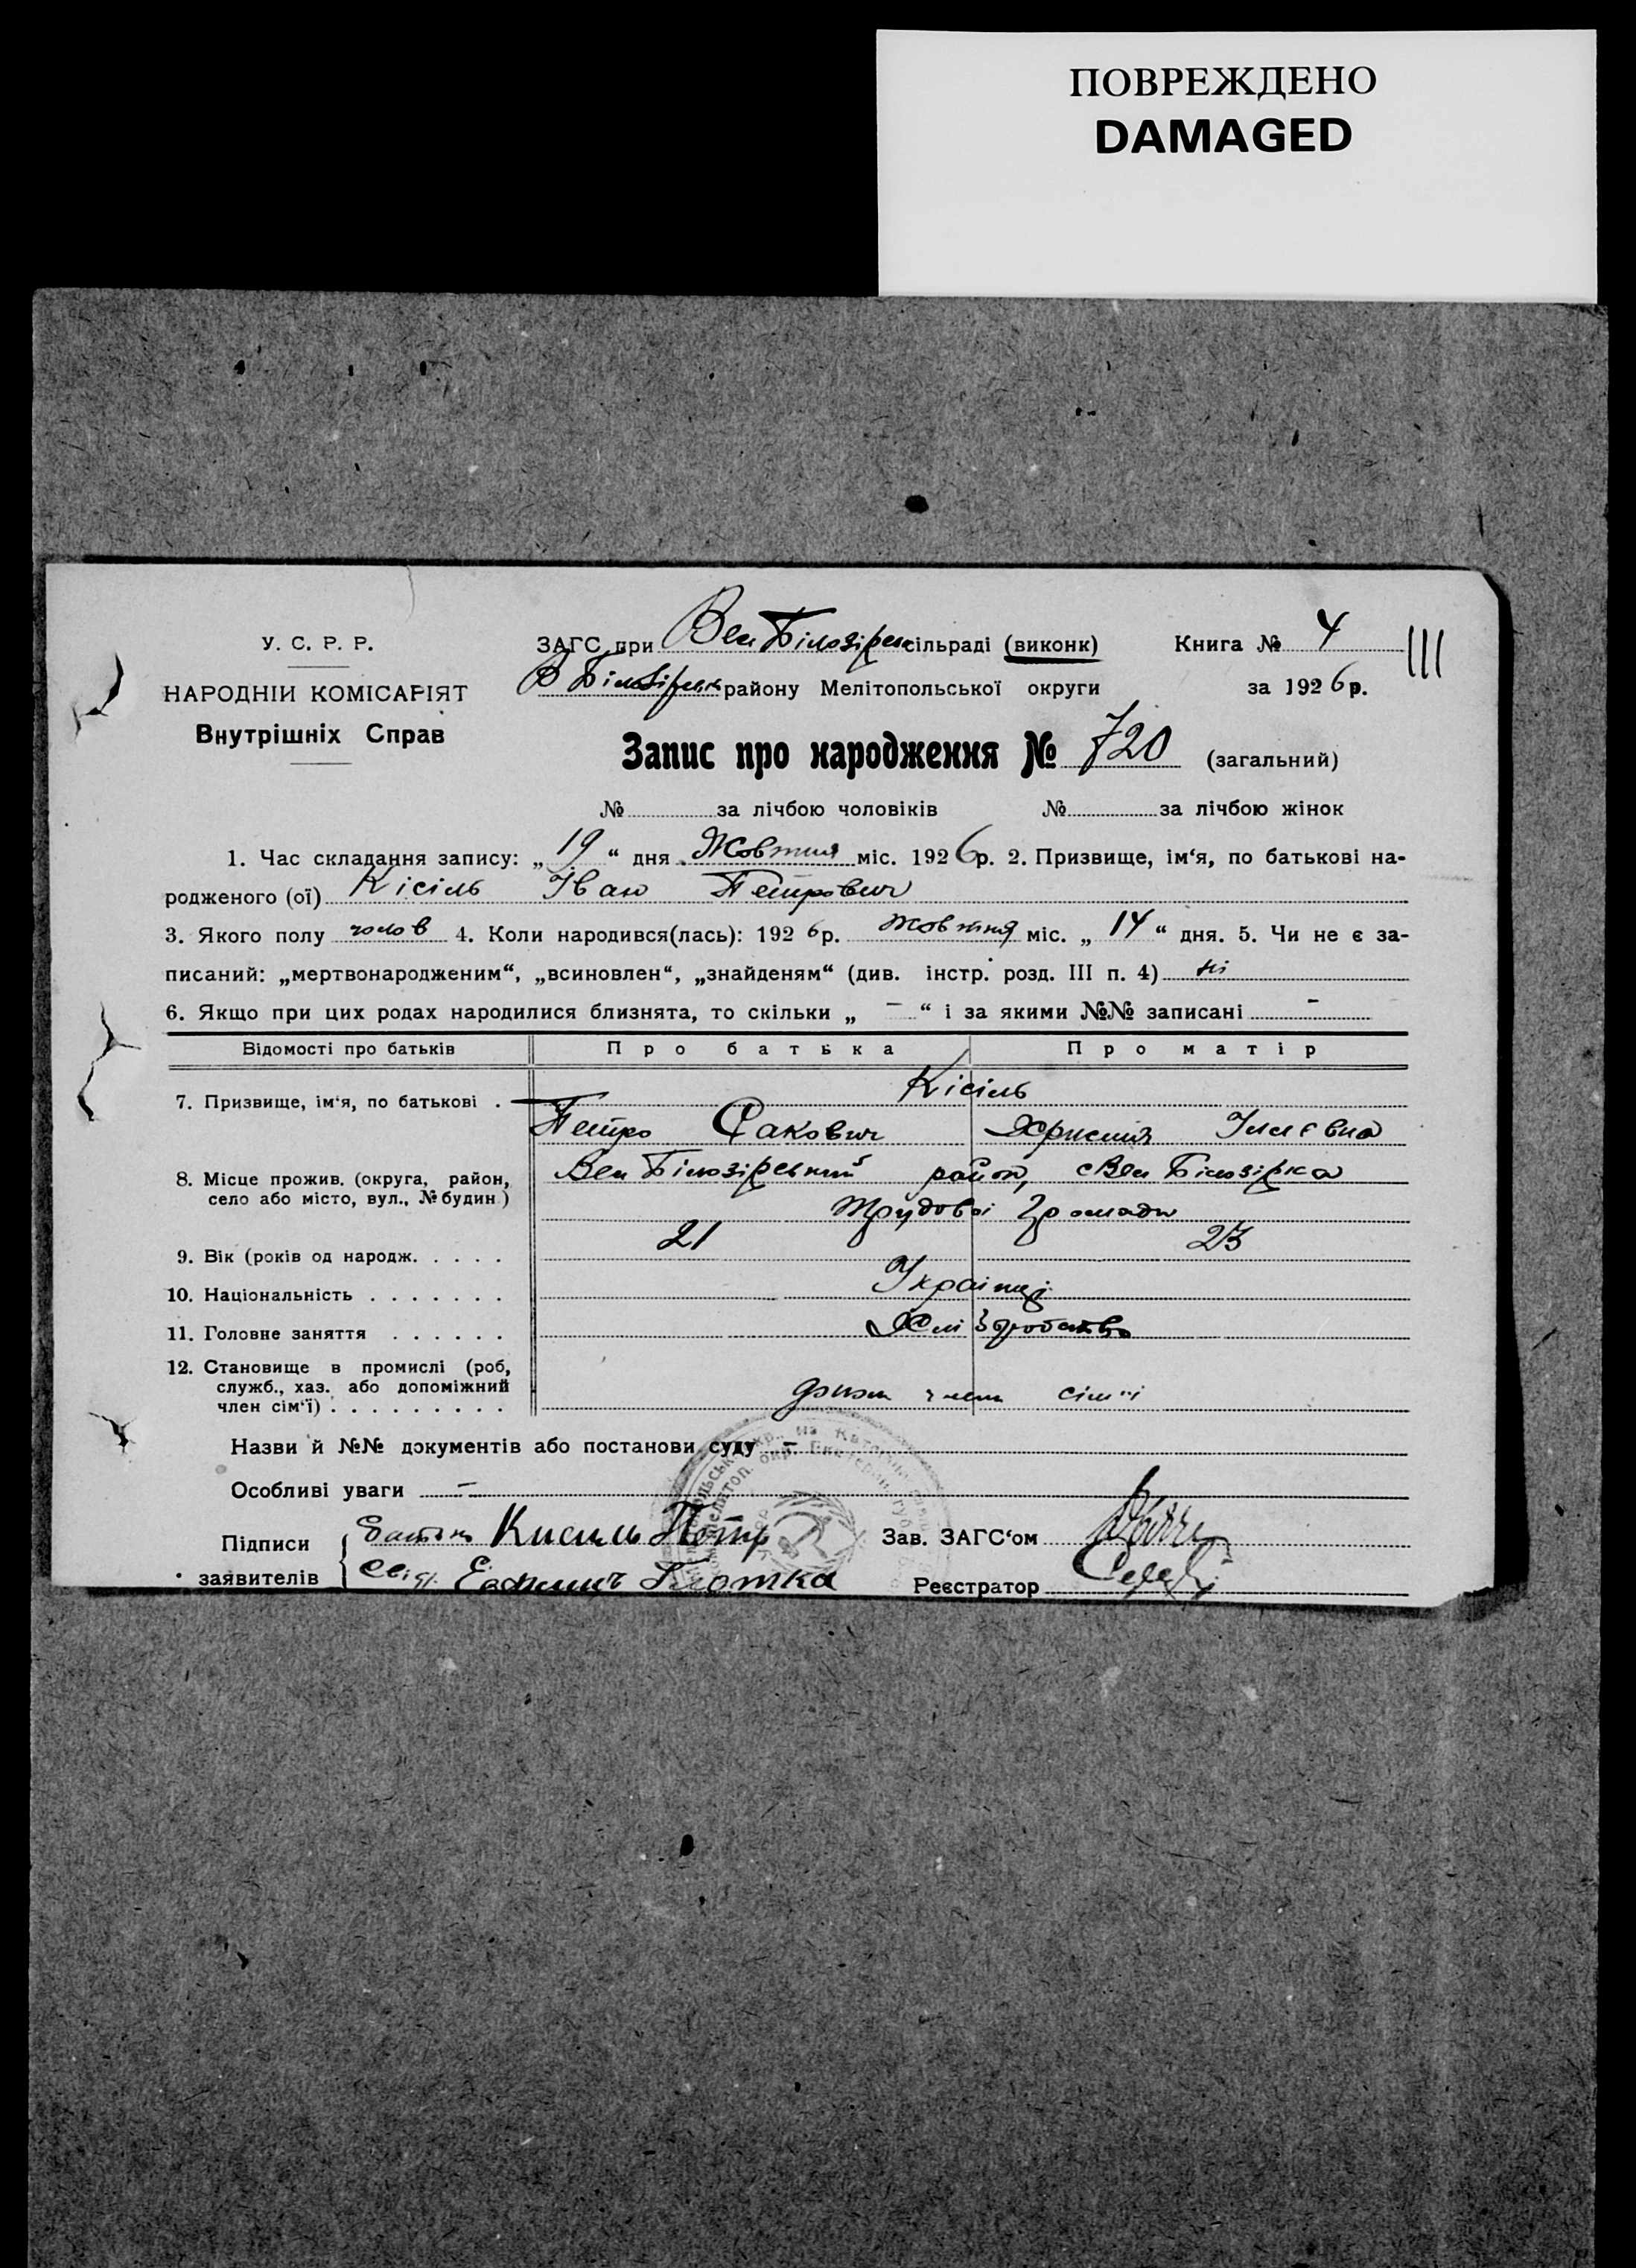 ПОВРЕЖДЕНО
DAMAGED
У. С. Р. Р.
НАРОДНІЙ КОМІСАРІЯТ
Внутрішніх Справ
ЗАГС при Вел Білозірськ сільраді (виконк)
Книга № 4
III
В Білозірськ району Мелітопольської округи
за 1926 р.
Запис про народження № 720 (загальний)
№ за лічбою чоловіків № за лічбою жінок
1. Час складання запису: „19“ дня Жовтня міс. 1926 р. 2. Призвище, ім‘я, по батькові на-
родженого (ої) Кісіль Іван Петрович
3. Якого полу чолов 4. Коли народився(лась): 1926 р. жовтня міс. „14“ дня. 5. Чи не є за-
писаний: „мертвонародженим“, „всиновлен“, „знайденям“ (див. інстр. розд. III п. 4) ні
6. Якщо при цих родах народилися близнята, то скільки „ – “ і за якими №№ записані –
Відомості про батьків
Про батька
Про матір
7. Призвище, ім‘я, по батькові .
Кісіль
Петро Сакович
Христія Іллєвна
8. Місце прожив. (округа, район,
село або місто, вул., № будин.)
Вел Білозірський район, с Вел Білозірка
Трудової Громади
9. Вік (років од народж. . . . .
21
23
10. Національність . . . . . . .
Українці
11. Головне заняття . . . . . .
Хліборобство
12. Становище в промислі (роб,
служб., хаз. або допоміжний
член сім‘ї) . . . . . . . . .
член сім'ї
Назви й №№ документів або постанови суду –
Особливі уваги –
Підписи
заявителів
Батько Кисиль Петр
Свід.
Зав. ЗАГС‘ом
Реєстратор